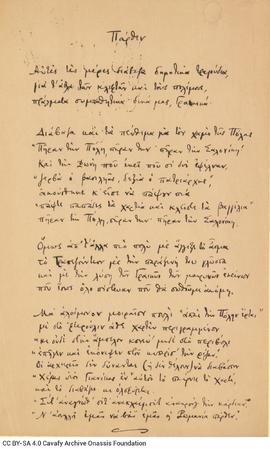 Πάρθεν
Αυτές τες μέρες διάβαζα δημοτικά τραγούδια,
για τ' άθλα των κλεφτών και τους πολέμους,
πράγματα συμπαθητικά· δικά μας, Γραικικά.
Διάβαζα και τα πένθιμα για τον χαμό της Πόλης
«Πήραν την Πόλη, πήραν την· πήραν την Σαλονίκη».
Και την Φωνή που εκεί που οι δυο εψέλναν,
«ζερβά ο βασιληάς, δεξιά ο πατριάρχης»,
ακούσθηκε κ' είπε να πάψουν πια
«πάψτε παπάδες τα χαρτιά και κλείστε τα βαγγέλια»
πήραν την Πόλη, πήραν την· πήραν την Σαλονίκη.
Όμως απ' τ' άλλα πιο πολύ με άγγιξε το άσμα
το Τραπεζούντιον με την παράξενή του γλώσσα
και με την λύπη των Γραικών των μακρινών εκείνων
που ίσως όλο πίστευαν που θα σωθούμε ακόμη.
Μα αλοίμονον μοιραίον πουλί «απαί την Πόλην έρται»
με στο «φτερούλιν αθε χαρτίν περιγραμμένον
κι ουδέ στην άμπελον κονεύ' μηδέ στο περιβόλι
επήγεν και εκόνεψεν στου κυπαρίσ' την ρίζαν».
Οι αρχιερείς δεν δύνανται (ή δεν θέλουν) να διαβάσουν
«Χέρας υιός Γιανίκας έν» αυτός το παίρνει το χαρτί,
και το διαβάζει κι ολοφύρεται.
«Σίτ' αναγνώθ' σίτ' ανακλαίγ' σίτ' ανακρούγ' την καρδίαν.
Ν' αοιλλή εμάς να βάι εμάς η Ρωμανία πάρθεν.»
CC BY-SA 4.0 Cavafy Archive Onassis Foundation